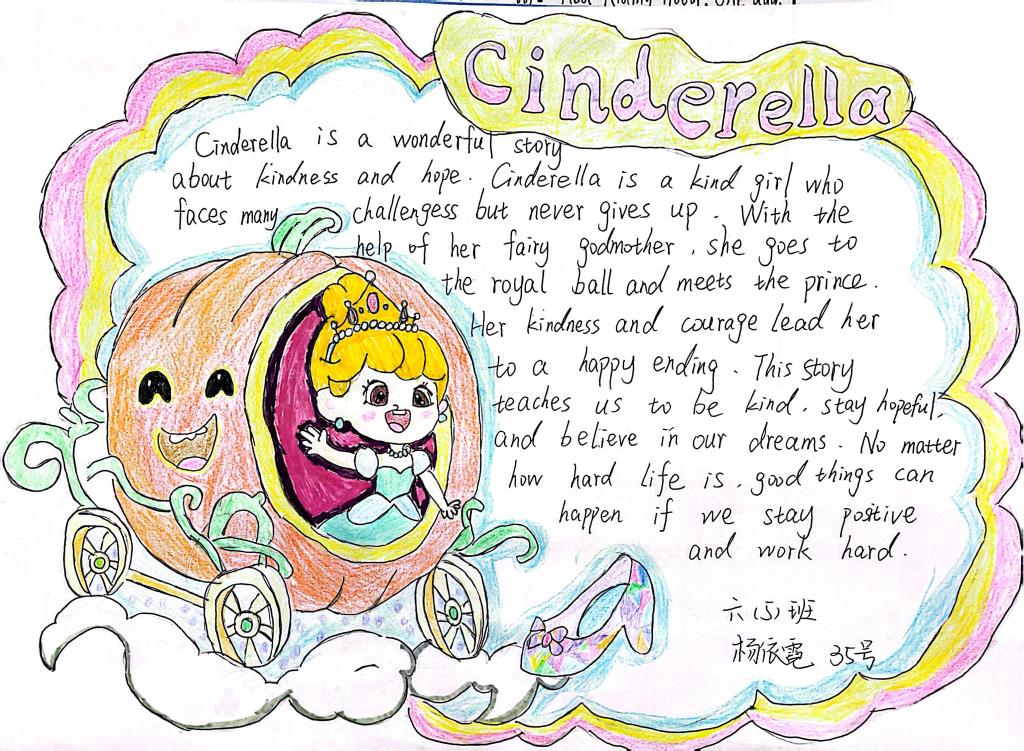 Cinderella
Cinderella is a wonderful story
about kindness and hope. Cinderella is a kind girl who
faces many challengess but never gives up. With the
help of her fairy godmother, she goes to
the royal ball and meets the prince.
Her kindness and courage lead her
to a happy ending. This story
teaches us to be kind, stay hopeful,
and believe in our dreams. No matter
how hard life is, good things can
happen if we stay positive
and work hard.
六(5)班
杨依霓 35号